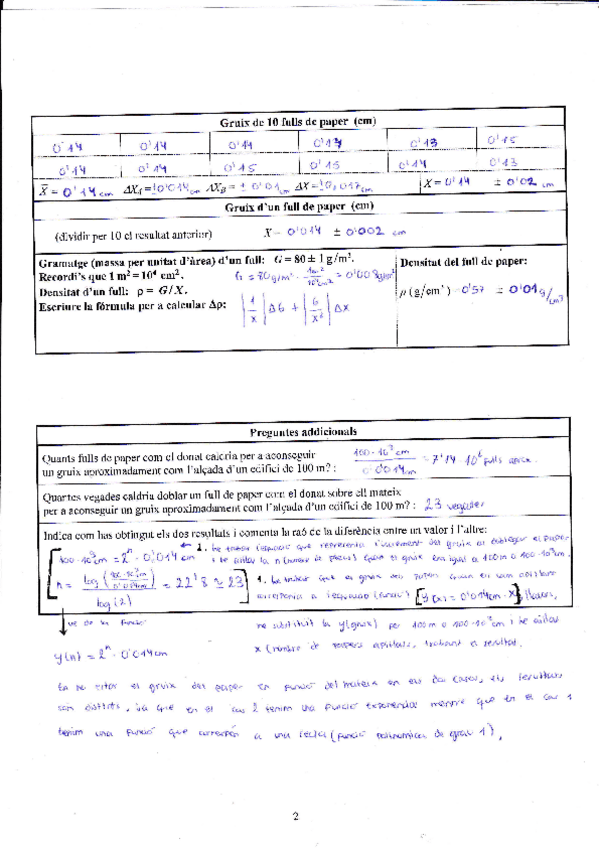 Gruix de 10 fulls de paper (cm)
0'14 0'14 0'14 0'13 0'13 0'15
0'14 0'14 0'15 0'15 0'14 0'13
X̄ = 0'14 cm ΔX₁ = ±0'014 cm ΔX_B = ± 0'01 cm ΔX = ±0'017 cm X = 0'14 ± 0'02 cm
Gruix d'un full de paper (cm)
(dividir per 10 el resultat anterior) X = 0'014 ± 0'002 cm
Gramatge (massa per unitat d'àrea) d'un full: G = 80 ± 1 g/m².
Recordi's que 1 m² = 10⁴ cm². G = 80 g/m² · 1m²/10⁴cm² = 0'008 g/cm²
Densitat d'un full: ρ = G/X.
Escriure la fórmula per a calcular Δρ: |1/x| ΔG + |G/x²| Δx
Densitat del full de paper:
ρ (g/cm³) = 0'57 ± 0'01 g/cm³
Preguntes addicionals
Quants fulls de paper com el donat caldria per a aconseguir
un gruix aproximadament com l'alçada d'un edifici de 100 m? : 100·10² cm / 0'0014cm = 7'14·10⁶ fulls aprox.
Quantes vegades caldria doblar un full de paper com el donat sobre ell mateix
per a aconseguir un gruix aproximadament com l'alçada d'un edifici de 100 m? : 23 vegades
Indica com has obtingut els dos resultats i comenta la raó de la diferència entre un valor i l'altre:
100·10² cm = 2ⁿ · 0'0014 cm
← 2. he trobat l'equació que representa l'increment del gruix al doblegar el paper
i he aïllat la n (nombre de plecs) quan el gruix era igual a 100m o 100·10² cm.
n = log(100·10² m / 0'0014 cm) / log(2) = 22'8 ≃ 23
1. he trobat que el gruix dels papers quan es van apilant
[y(x) = 0'0014cm · x], llavors,
ve de la funció
he substituït la y(gruix) per 100m o 100·10² cm i he aïllat
y(n) = 2ⁿ · 0'0014cm
x (nombre de papers apilats), trobant el resultat.
el gruix del paper en funció del mateix en els dos casos, els resultats
són distints, ja que en el cas 2 tenim una funció exponencial mentre que en el cas 1
tenim una funció que correspon a una recta (funció polinòmica de grau 1).
2